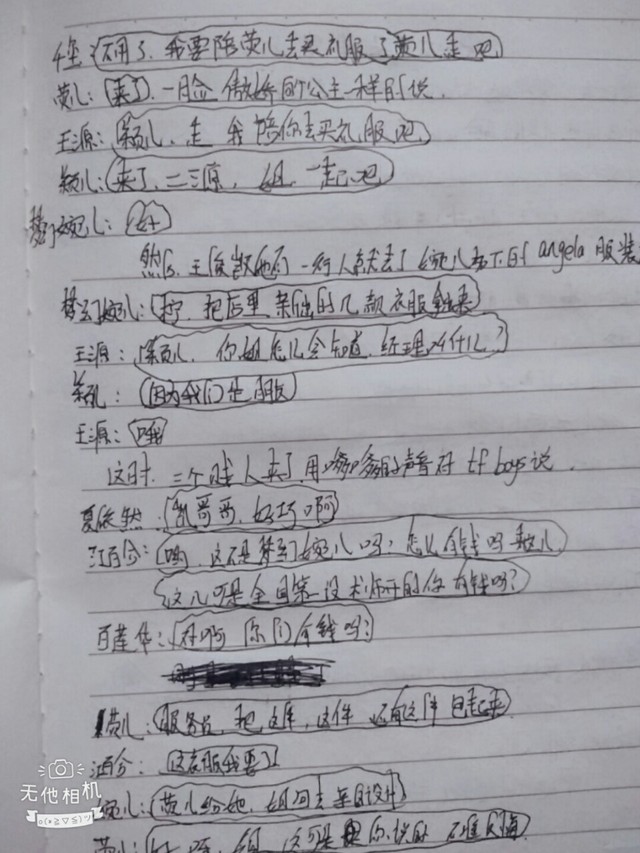 千玺：不用了，我要陪荧儿去买衣服了荧儿走吧
荧儿：来了，一脸傲娇的公主一样的说
王源：颖儿，走 我陪你去买衣服吧
颖儿：来了，二三源，姐，一起吧
梦幻婉儿：好
然后，王俊凯他们一行人就去了婉儿名下的 angela 服装
梦幻婉儿：把后里 的几款衣服拿来
王源：颖儿，你姐怎么会知道，经理叫什么？
颖儿：因为我们也
王源：哦
这时，三个贱人来了，用嗲嗲的声音对 tf boys 说，
夏依然：凯哥哥，好巧啊
江百合：哟，这不是梦幻婉儿吗？怎么 有钱吗
这儿可是全国第一设 师开的你有钱吗？
百莲华：对啊 你们有钱吗？
荧儿：服务员，把这件，这件 还有这件 包起来
江百合：这衣服我要了
婉儿：荧儿给她，姐回去 设计
荧儿： 姐，这可是你说的 不准反悔
无他相机